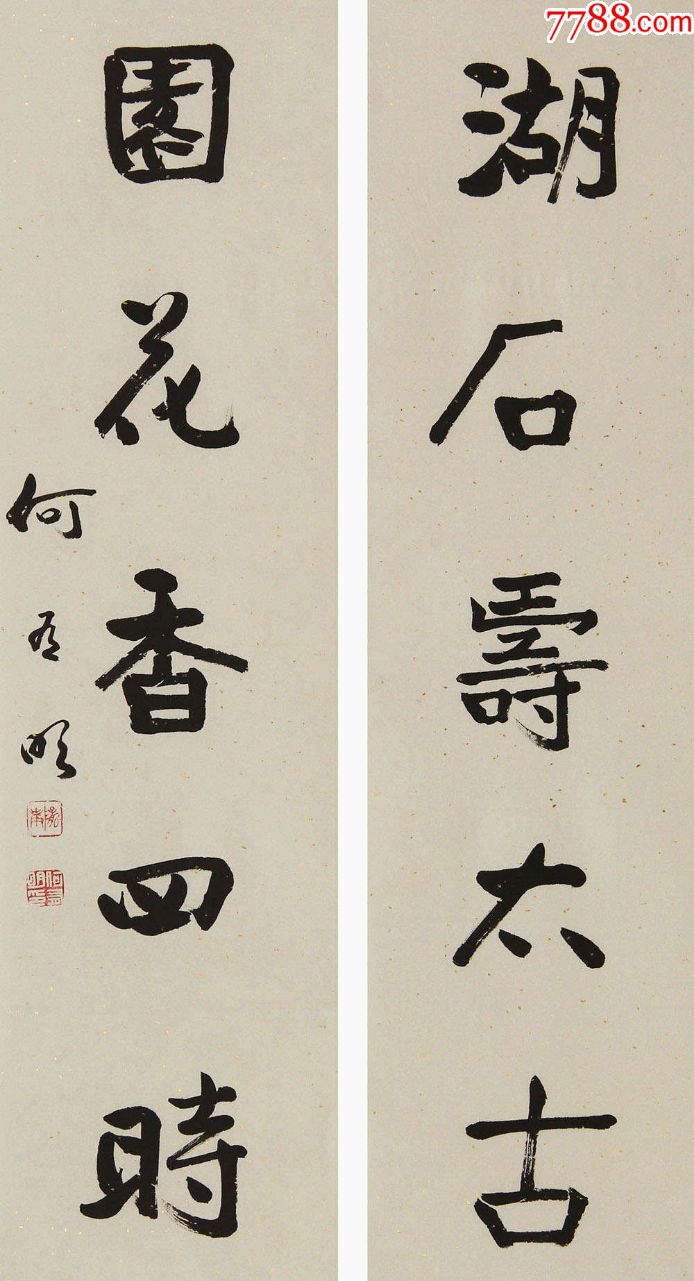 7788.com
湖石壽太古
園花香四時
何有明